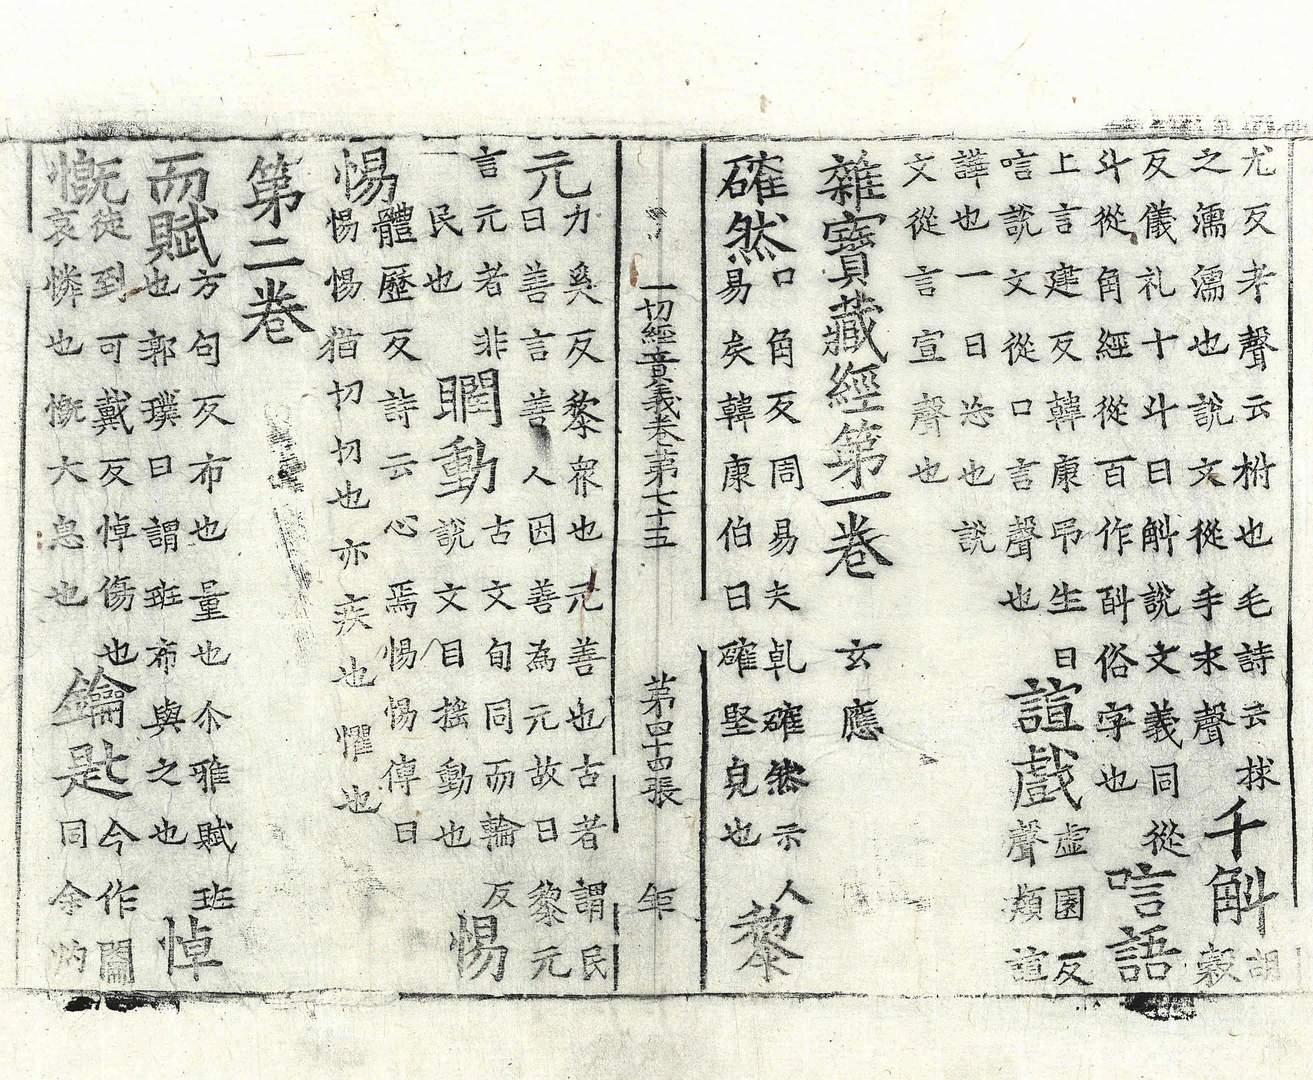 尤反考聲云柎也毛詩云捄
之濡濡也說文從手求聲
千斛
胡
穀
反儀礼十斗曰斛說文義同從
斗從角經從百作㪶俗字也
唁語
上言建反韓康吊生曰
唁說文從口言聲也
諠戲
虛園反
聲類諠
譁也一曰恐也說
文從言宣聲也
雜寶藏經第一卷 玄應
確然
口角反周易夫乹確然示人
易矣韓康伯曰確堅皃也
黎
一切經音義卷第七十五 第四十四張 年
元
力奚反黎衆也元善也古者謂民
曰善言善人因善為元故曰黎元
言元者非
民也
瞤動
古文旬同而輪反
說文目搖動也
惕
惕
體歷反詩云心焉惕惕傳曰
惕惕猶忉忉也亦疾也懼也
第二卷
而賦
方句反布也量也尒雅賦班
也郭璞曰謂班布與之也
悼
慨
徒到可戴反悼傷也
哀憐也慨大息也
鑰匙
今作闟
同余灼